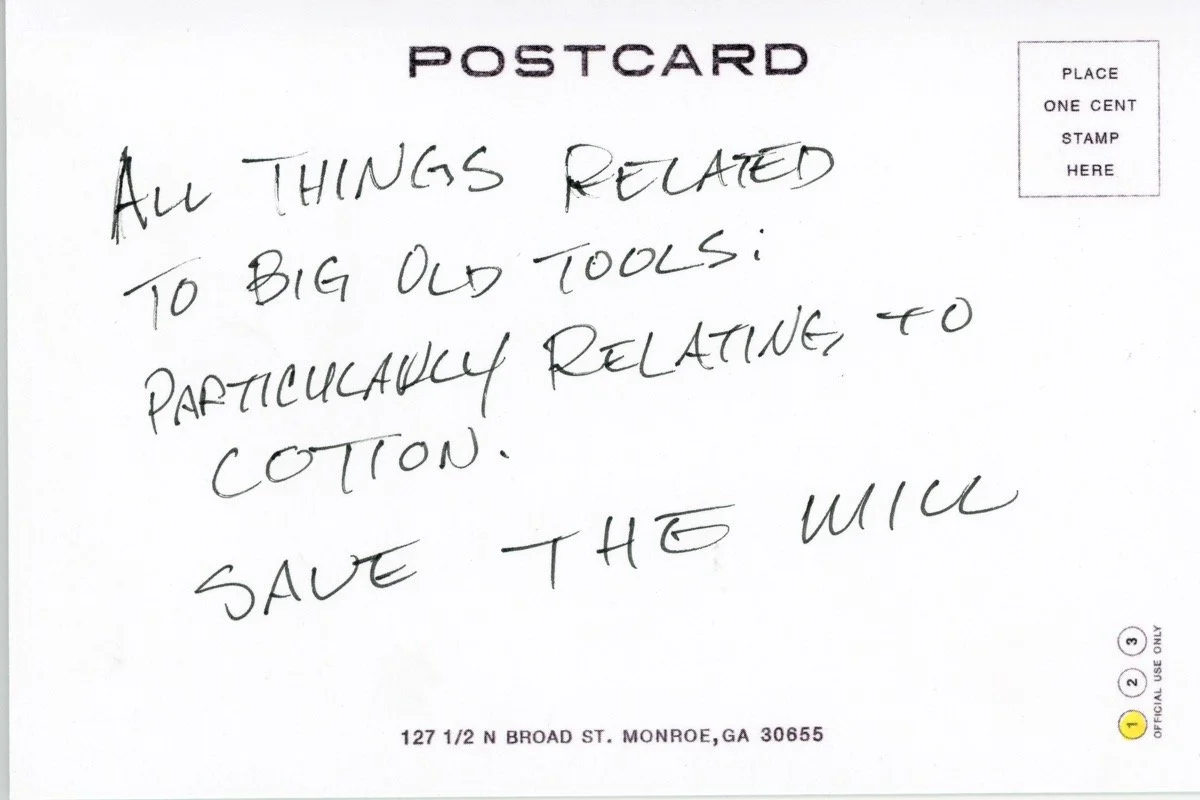 POSTCARD
PLACE
ONE CENT
STAMP
HERE
ALL THINGS RELATED
TO BIG OLD TOOLS:
PARTICULARLY RELATING TO
COTTON.
SAVE THE MILL
1 2 3
OFFICIAL USE ONLY
127 1/2 N BROAD ST. MONROE,GA 30655